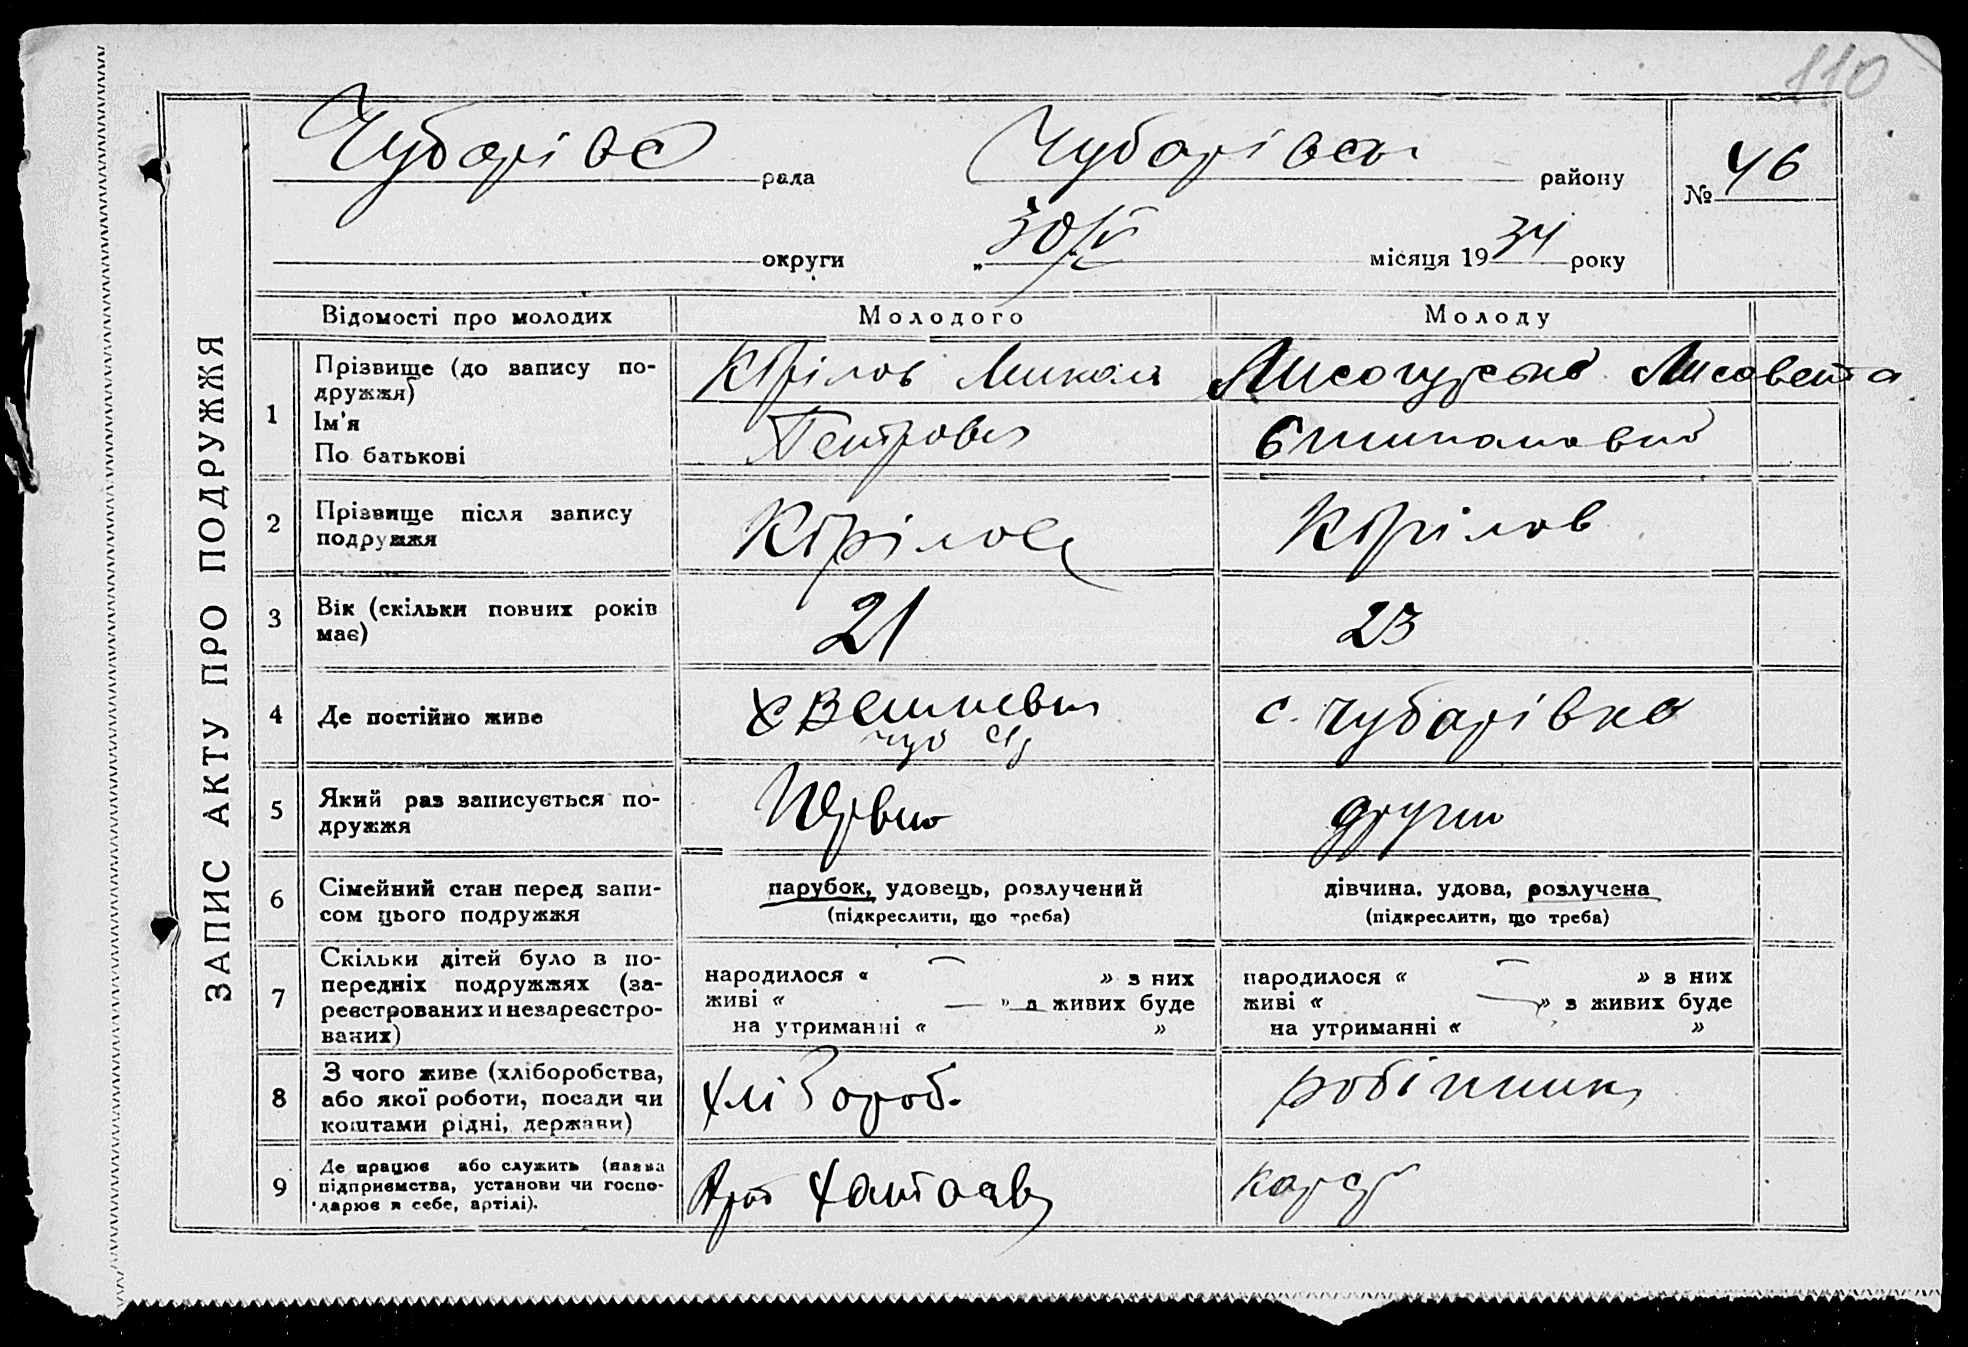 110
ЗАПИС АКТУ ПРО ПОДРУЖЖЯ
Чубарівс рада Чубарівськ району № 46
округи „30/V місяця 1934 року
Відомості про молодих Молодого Молоду
1 Прізвище (до запису по-
дружжя)
Ім'я
По батькові
Кірілов Микола
Петрович
Лисогурська Лисавета
Степановна
2 Прізвище після запису
подружжя
Кірілов
Кірілов
3 Вік (скільки повних років
має)
21
23
4 Де постійно живе
с. Чубарівка
5 Який раз записується по-
дружжя
Первий
другий
6 Сімейний стан перед запи-
сом цього подружжя
парубок, удовець, розлучений
(підкреслити, що треба)
дівчина, удова, розлучена
(підкреслити, що треба)
7 Скільки дітей було в по-
передніх подружжях (за-
реєстрованих и незареєстро-
ваних)
народилося « — » з них
живі « — » з живих буде
на утриманні « »
народилося « — » з них
живі « — » з живих буде
на утриманні « »
8 З чого живе (хліборобства,
або якої роботи, посади чи
коштами рідні, держави)
хлібороб.
робітник
9 Де працює або служить (назва
підприємства, установи чи госпо-
дарює в себе, артілі).
Арт